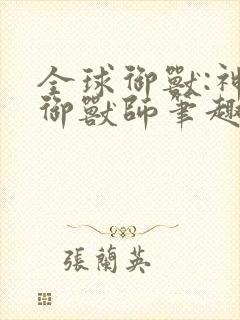 全球御獸:神
御獸師筆趣
張蘭英